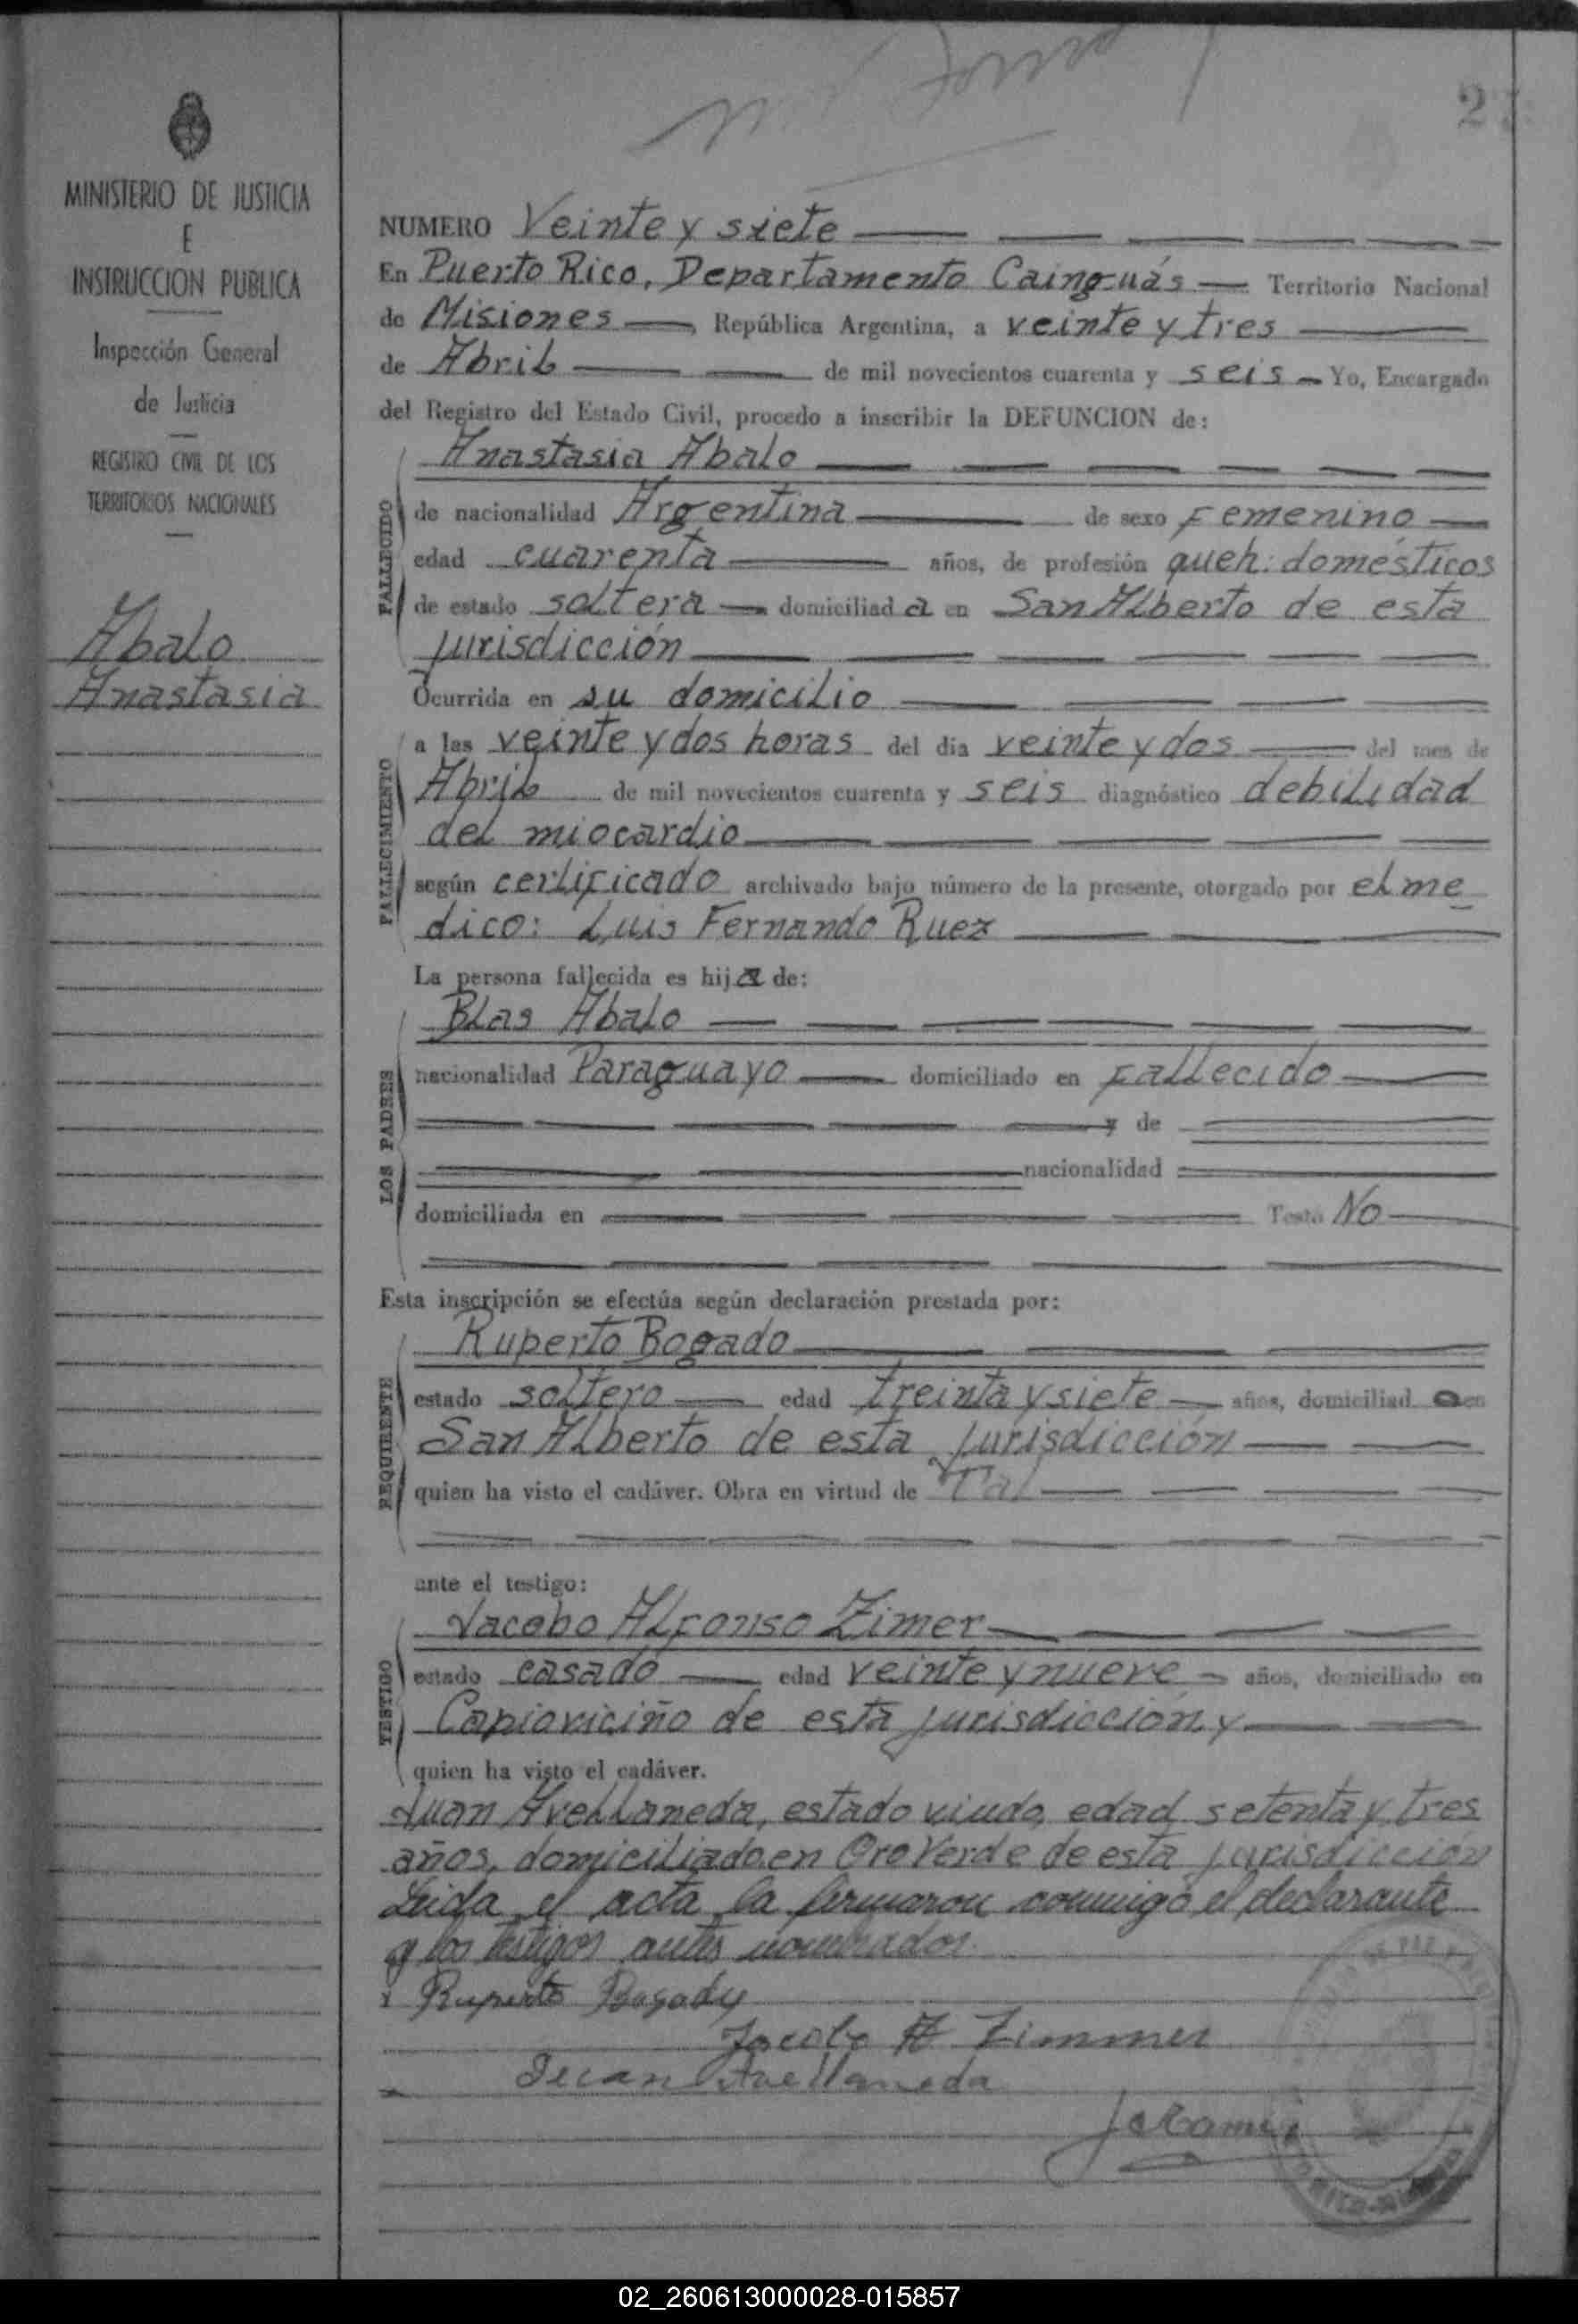 27
MINISTERIO DE JUSTICIA
E
INSTRUCCION PUBLICA
Inspección General
de Justicia
REGISTRO CIVIL DE LOS
TERRITORIOS NACIONALES
Abalo
Anastasia
NUMERO Veinte y siete
En Puerto Rico, Departamento Cainguás Territorio Nacional
de Misiones, República Argentina, a veinte y tres
de Abril de mil novecientos cuarenta y seis Yo, Encargado
del Registro del Estado Civil, procedo a inscribir la DEFUNCION de:
Anastasia Abalo
FALLECIDO
de nacionalidad Argentina de sexo Femenino
edad cuarenta años, de profesión queh. domésticos
de estado soltera domiciliad a en San Alberto de esta
jurisdicción
Ocurrida en su domicilio
FALLECIMIENTO
a las veinte y dos horas del día veinte y dos del mes de
Abril de mil novecientos cuarenta y seis diagnóstico debilidad
del miocardio
según certificado archivado bajo número de la presente, otorgado por el me
dico: Luis Fernando Ruez
La persona fallecida es hija de:
LOS PADRES
Blas Abalo
nacionalidad Paraguayo domiciliado en Fallecido
y de
nacionalidad
domiciliada en Testó No
Esta inscripción se efectúa según declaración prestada por:
REQUIRENTE
Ruperto Bogado
estado soltero edad treinta y siete años, domiciliad o en
San Alberto de esta jurisdicción
quien ha visto el cadáver. Obra en virtud de Tal
ante el testigo:
TESTIGO
Jacobo Alfonso Zimer
estado casado edad veinte y nueve años, domiciliado en
Capioviciño de esta jurisdicción y
quien ha visto el cadáver.
Juan Avellaneda, estado viudo, edad setenta y tres
años, domiciliado en Oro Verde de esta jurisdicción
Leida el acta la firmaron conmigo el declarante
y los testigos antes nombrados.
Ruperto Bogado
Jacobo A Zimmer
Juan Avellaneda
02_260613000028-015857